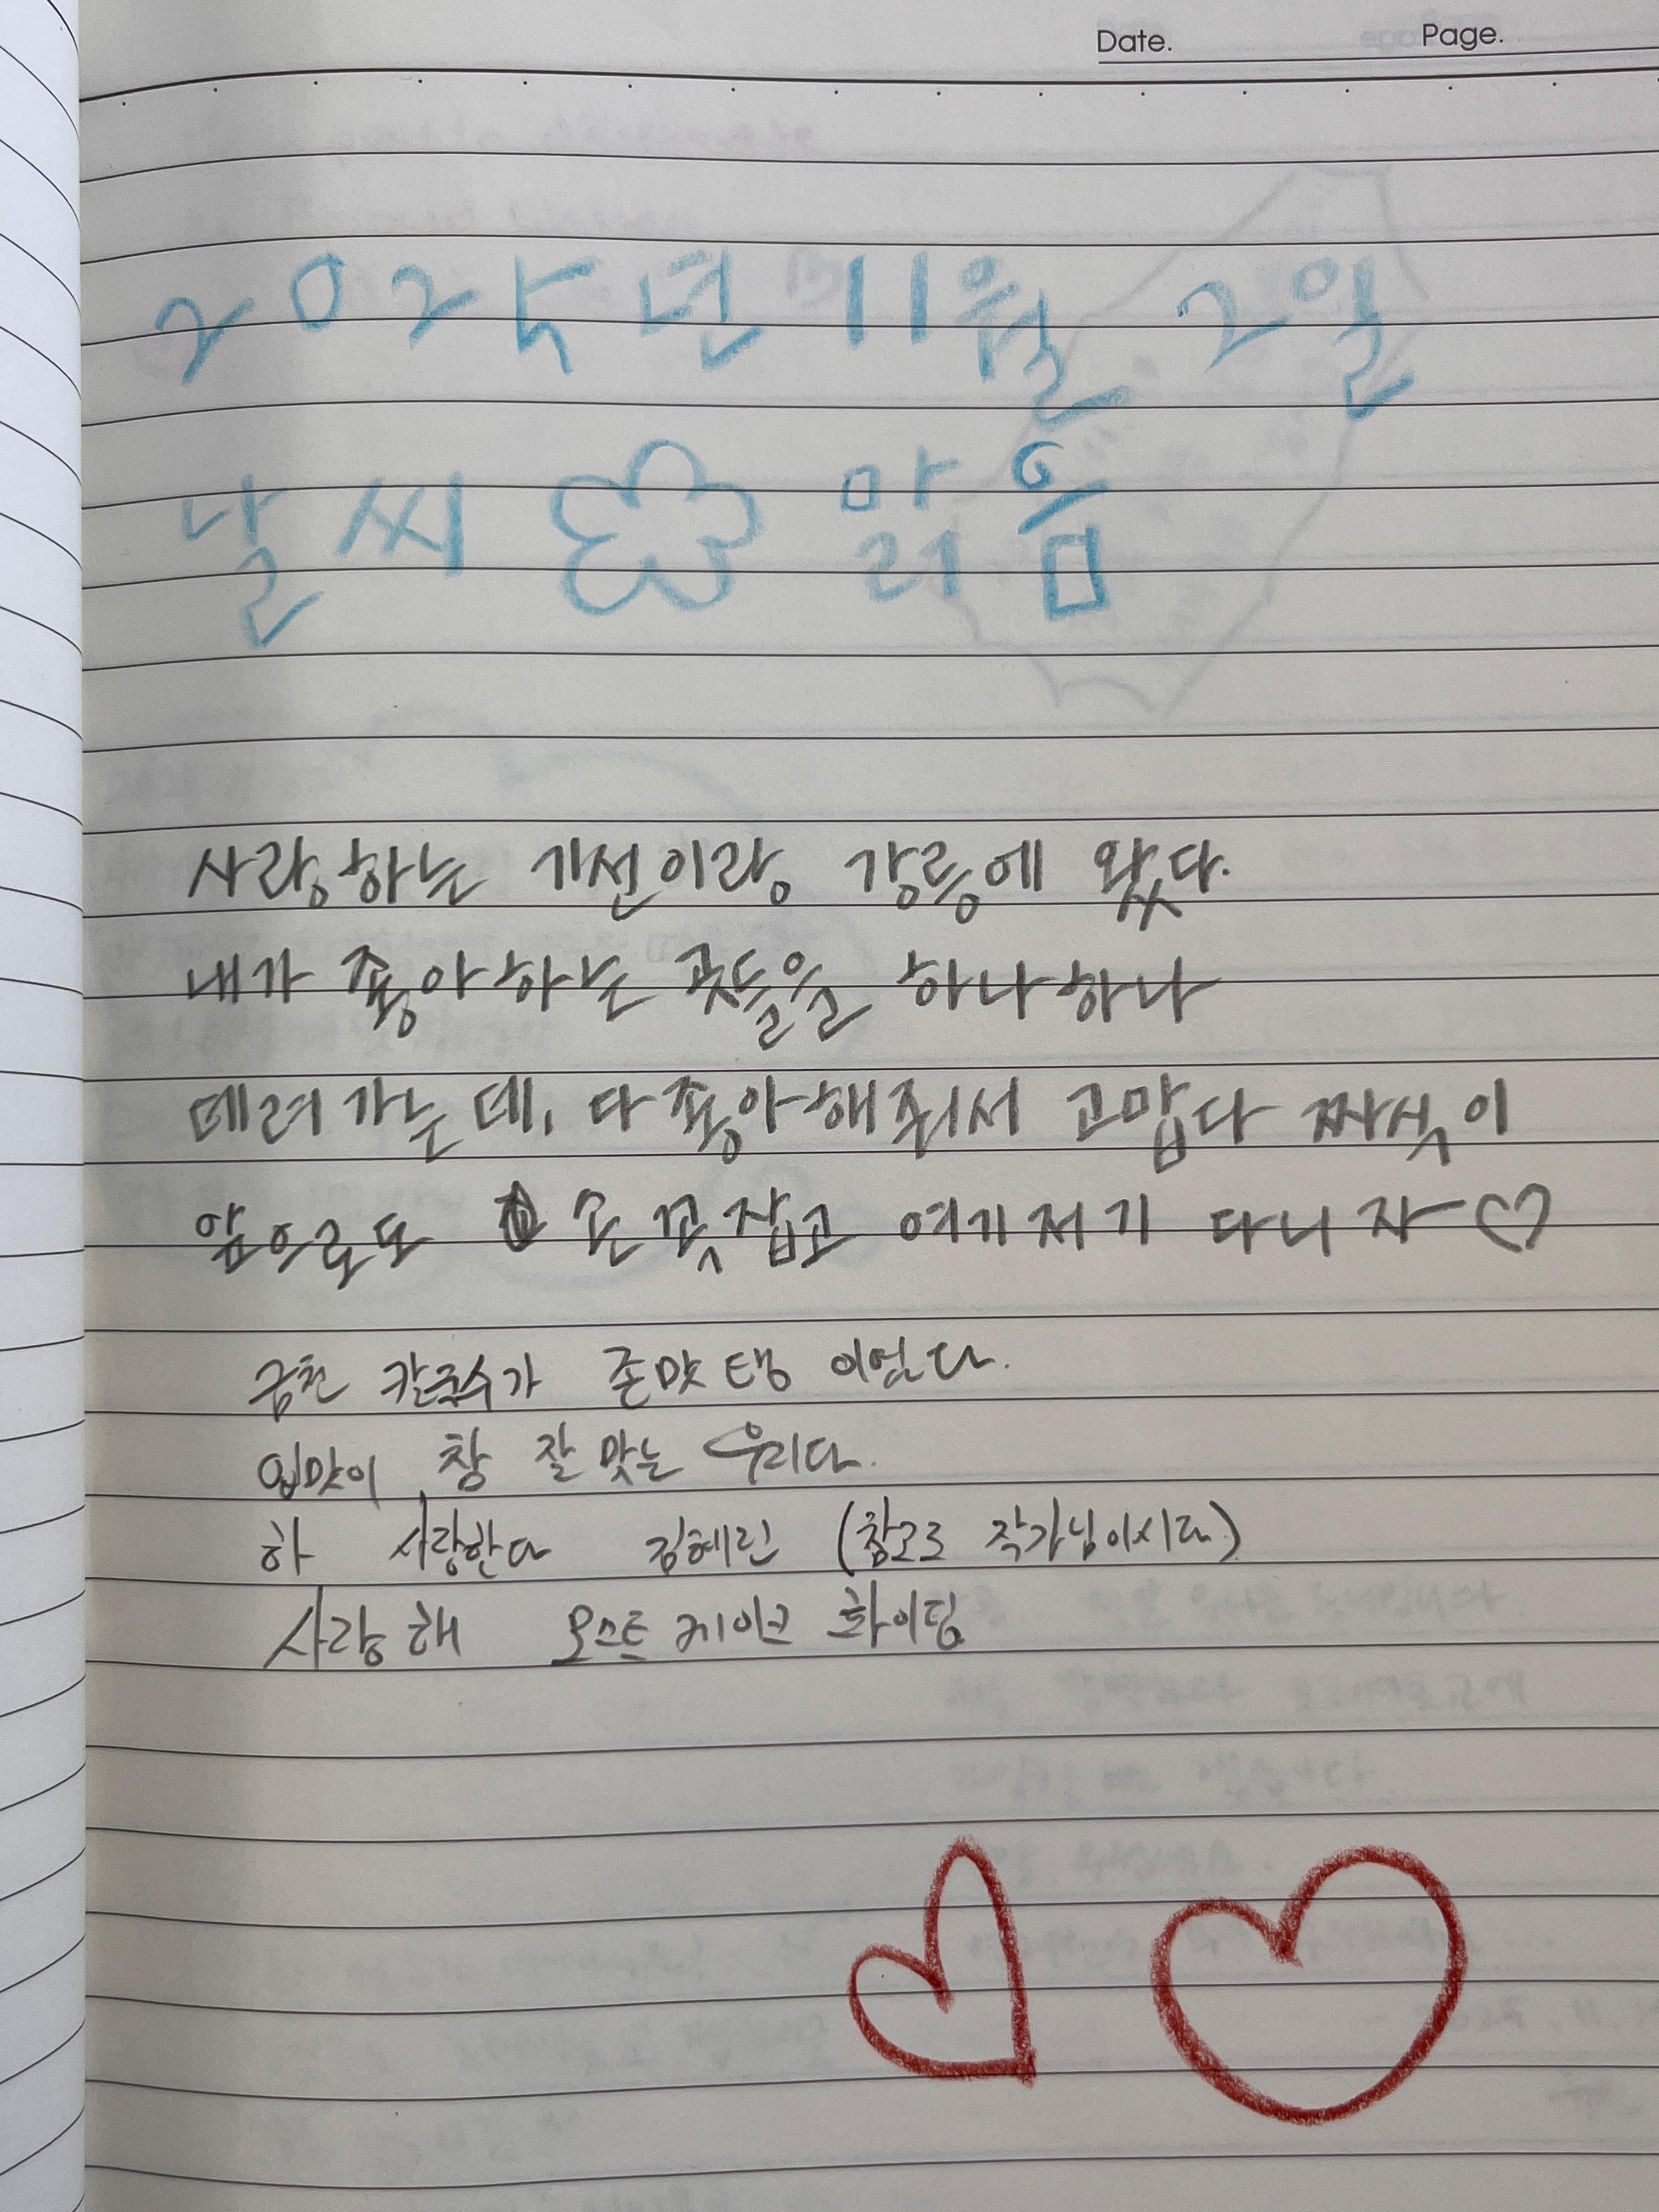 Date. Page.
2025년 11월 2일
날씨 맑음
사랑하는 기선이랑 강릉에 왔다.
내가 좋아하는 곳들을 하나하나
데려가는데, 다 좋아해줘서 고맙다 짜식이
앞으로도 손 꼭 잡고 여기저기 다니자♡
칼국수가 존맛탱 이었다.
입맛이 참 잘 맞는 우리다.
하 사랑한다 김혜린 (참고로 작가님이시다)
사랑해 오스트케이크 화이팅